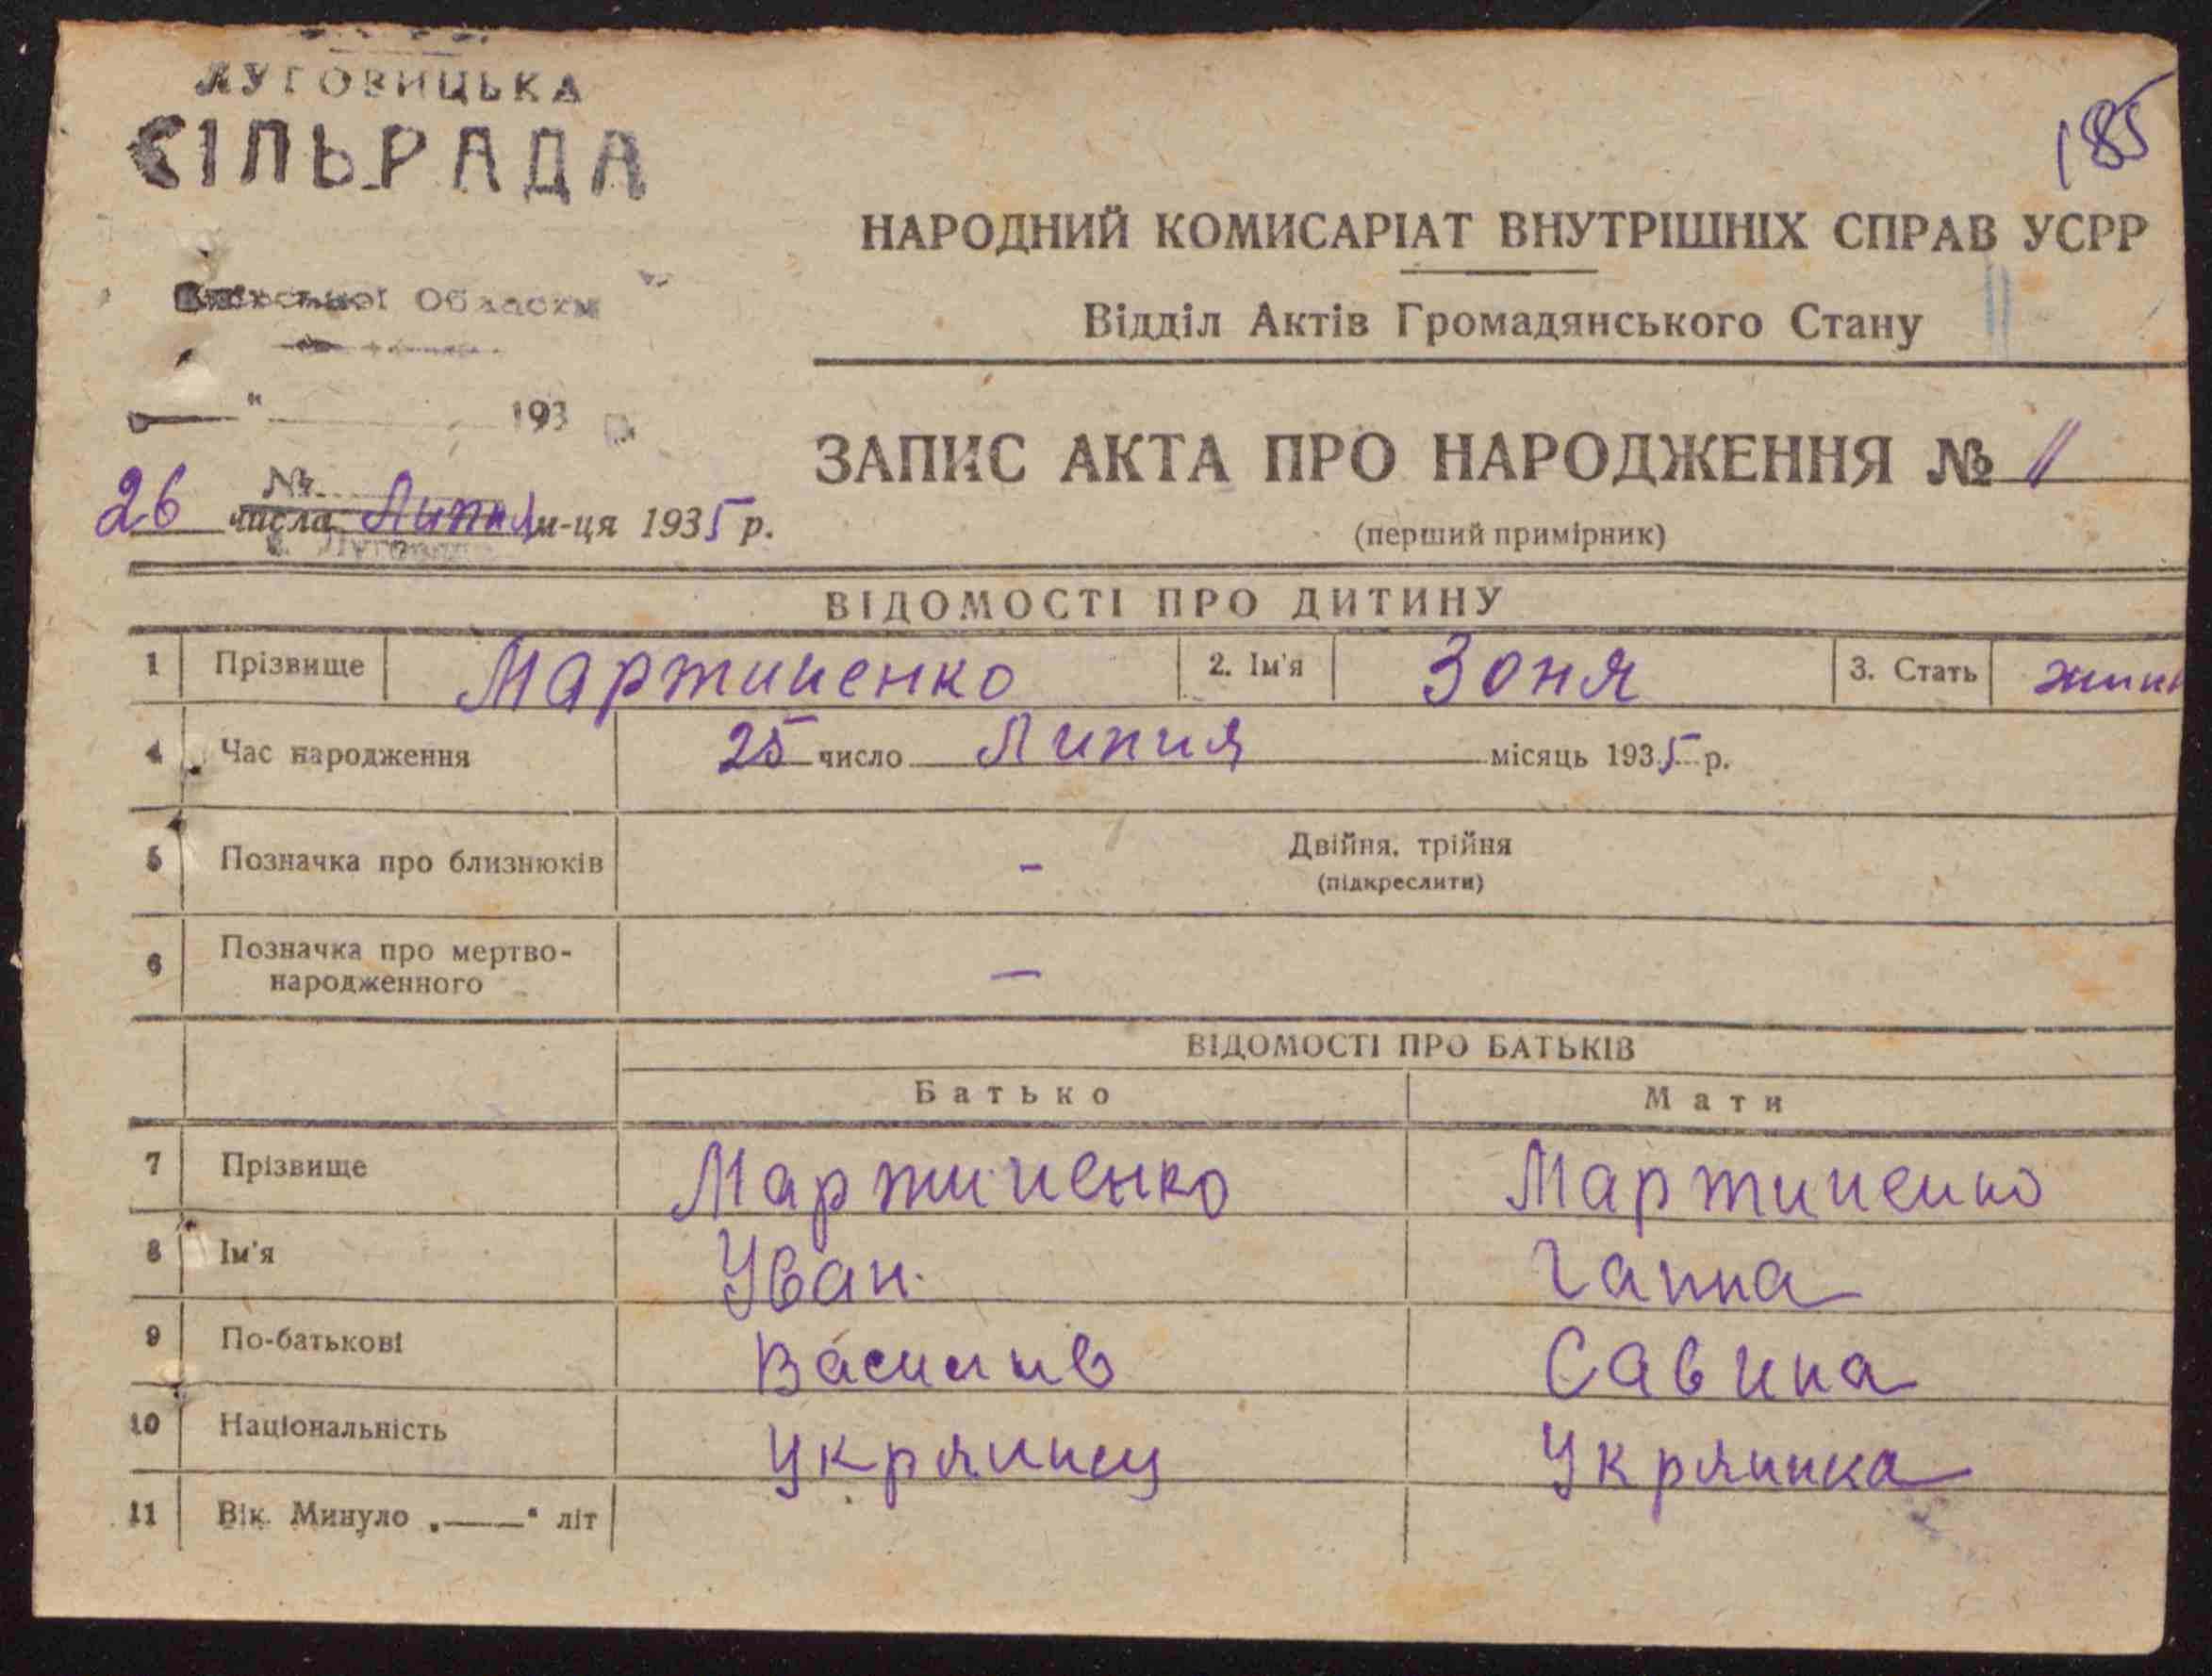 ЛУГОВИЦЬКА
СІЛЬРАДА
185
НАРОДНИЙ КОМИСАРІАТ ВНУТРІШНІХ СПРАВ УСРР
Області
Відділ Актів Громадянського Стану
" 193
ЗАПИС АКТА ПРО НАРОДЖЕННЯ № 11
№
26 числа Липня м-ця 1935 р.
(перший примірник)
ВІДОМОСТІ ПРО ДИТИНУ
1 Прізвище Мартиненко 2. Ім'я Зоня 3. Стать жин
4 Час народження 25 число Липня місяць 1935 р.
5 Позначка про близнюків - Двійня, трійня
(підкреслити)
6 Позначка про мертво-
народженного —
ВІДОМОСТІ ПРО БАТЬКІВ
Батько Мати
7 Прізвище Мартиненко Мартиненко
8 Ім'я Уван. Ганна
9 По-батькові Василив Савина
10 Національність Укряинец Укряинка
11 Вік. Минуло „——" літ